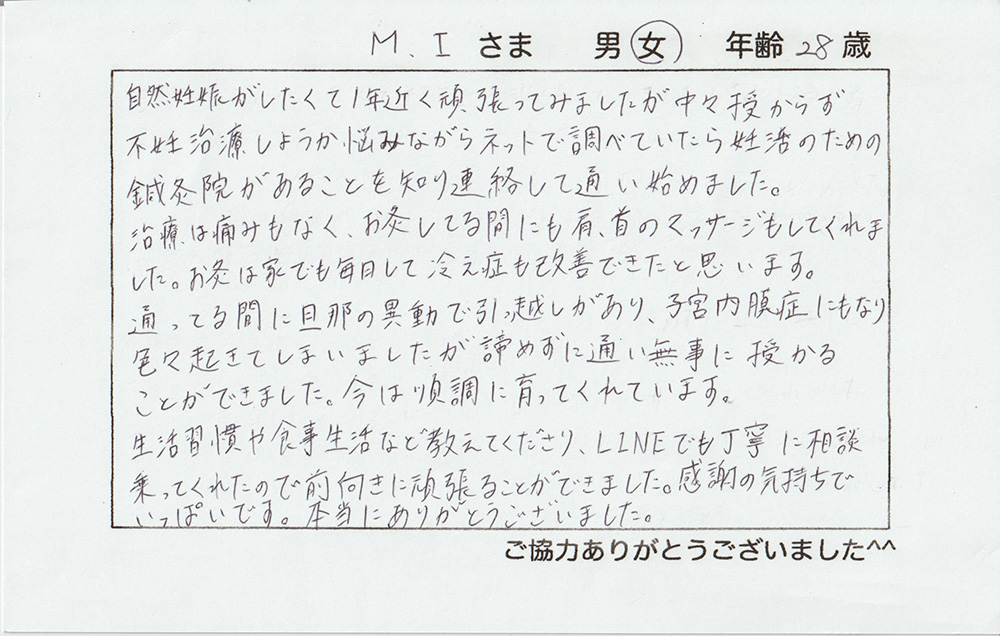 M.I さま 男 女 年齢 28 歳
自然妊娠がしたくて1年近く頑張ってみましたが中々授からず
不妊治療しようか悩みながらネットで調べていたら妊活のための
鍼灸院があることを知り連絡して通い始めました。
治療は痛みもなく、お灸してる間にも肩、首のマッサージもしてくれま
した。お灸は家でも毎日して冷え症も改善できたと思います。
通ってる間に旦那の異動で引っ越しがあり、子宮内膜症にもなり
色々起きてしまいましたが諦めずに通い無事に授かる
ことができました。今は順調に育ってくれています。
生活習慣や食事生活など教えてくださり、LINEでも丁寧に相談
乗ってくれたので前向きに頑張ることができました。感謝の気持ちで
いっぱいです。本当にありがとうございました。
ご協力ありがとうございました^^